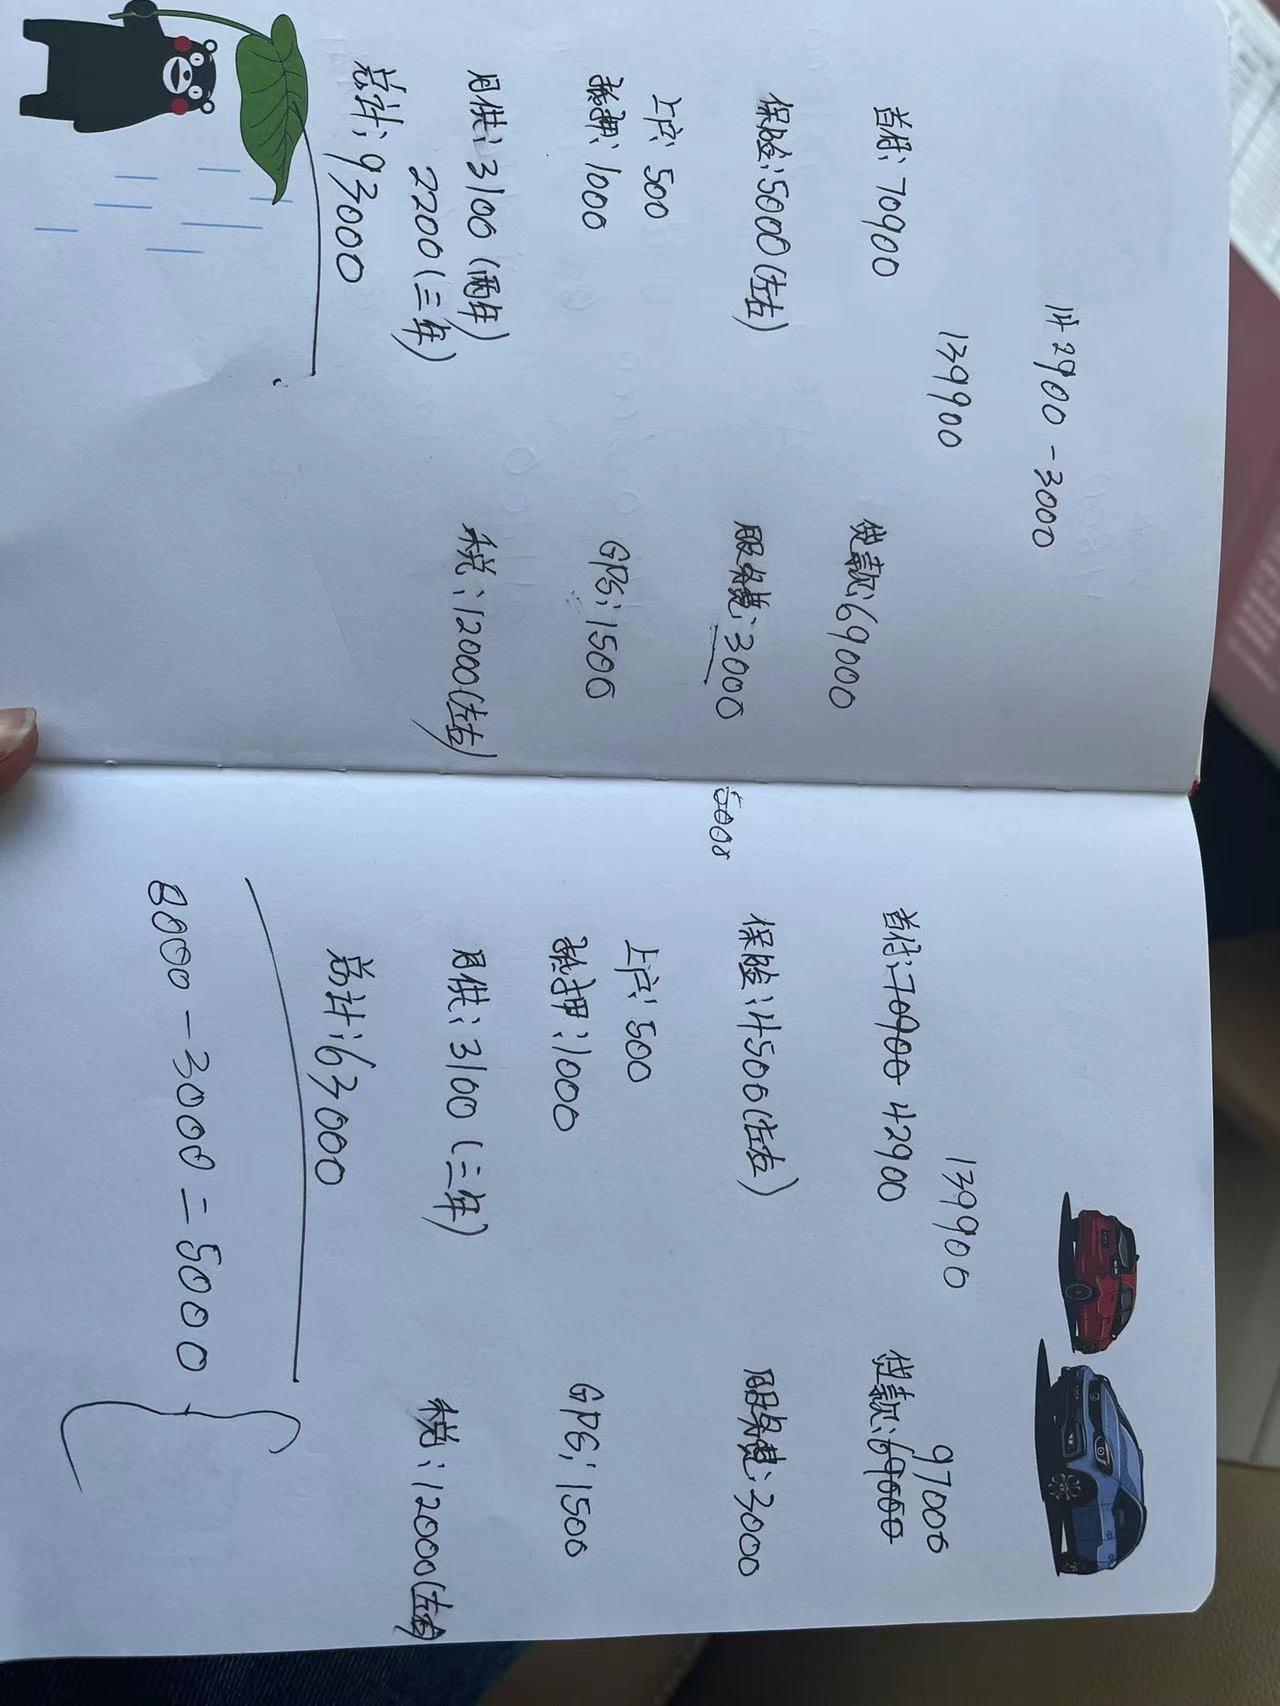 142900 - 3000
139900
首付: 70900 贷款: 69000
保险: 5000 (左右) 服务费: 3000
上户: 500
抵押: 1000 GPS: 1500
月供: 3100 (两年) 税: 12000 (左右)
2200 (三年)
总计: 93000
5000
139900
97000
首付: 70900 42900 贷款: 69000
保险: 4500 (左右) 服务费: 3000
上户: 500
抵押: 1000 GPS: 1500
月供: 3100 (三年) 税: 12000 (左右)
总计: 63000
8000 - 3000 = 5000